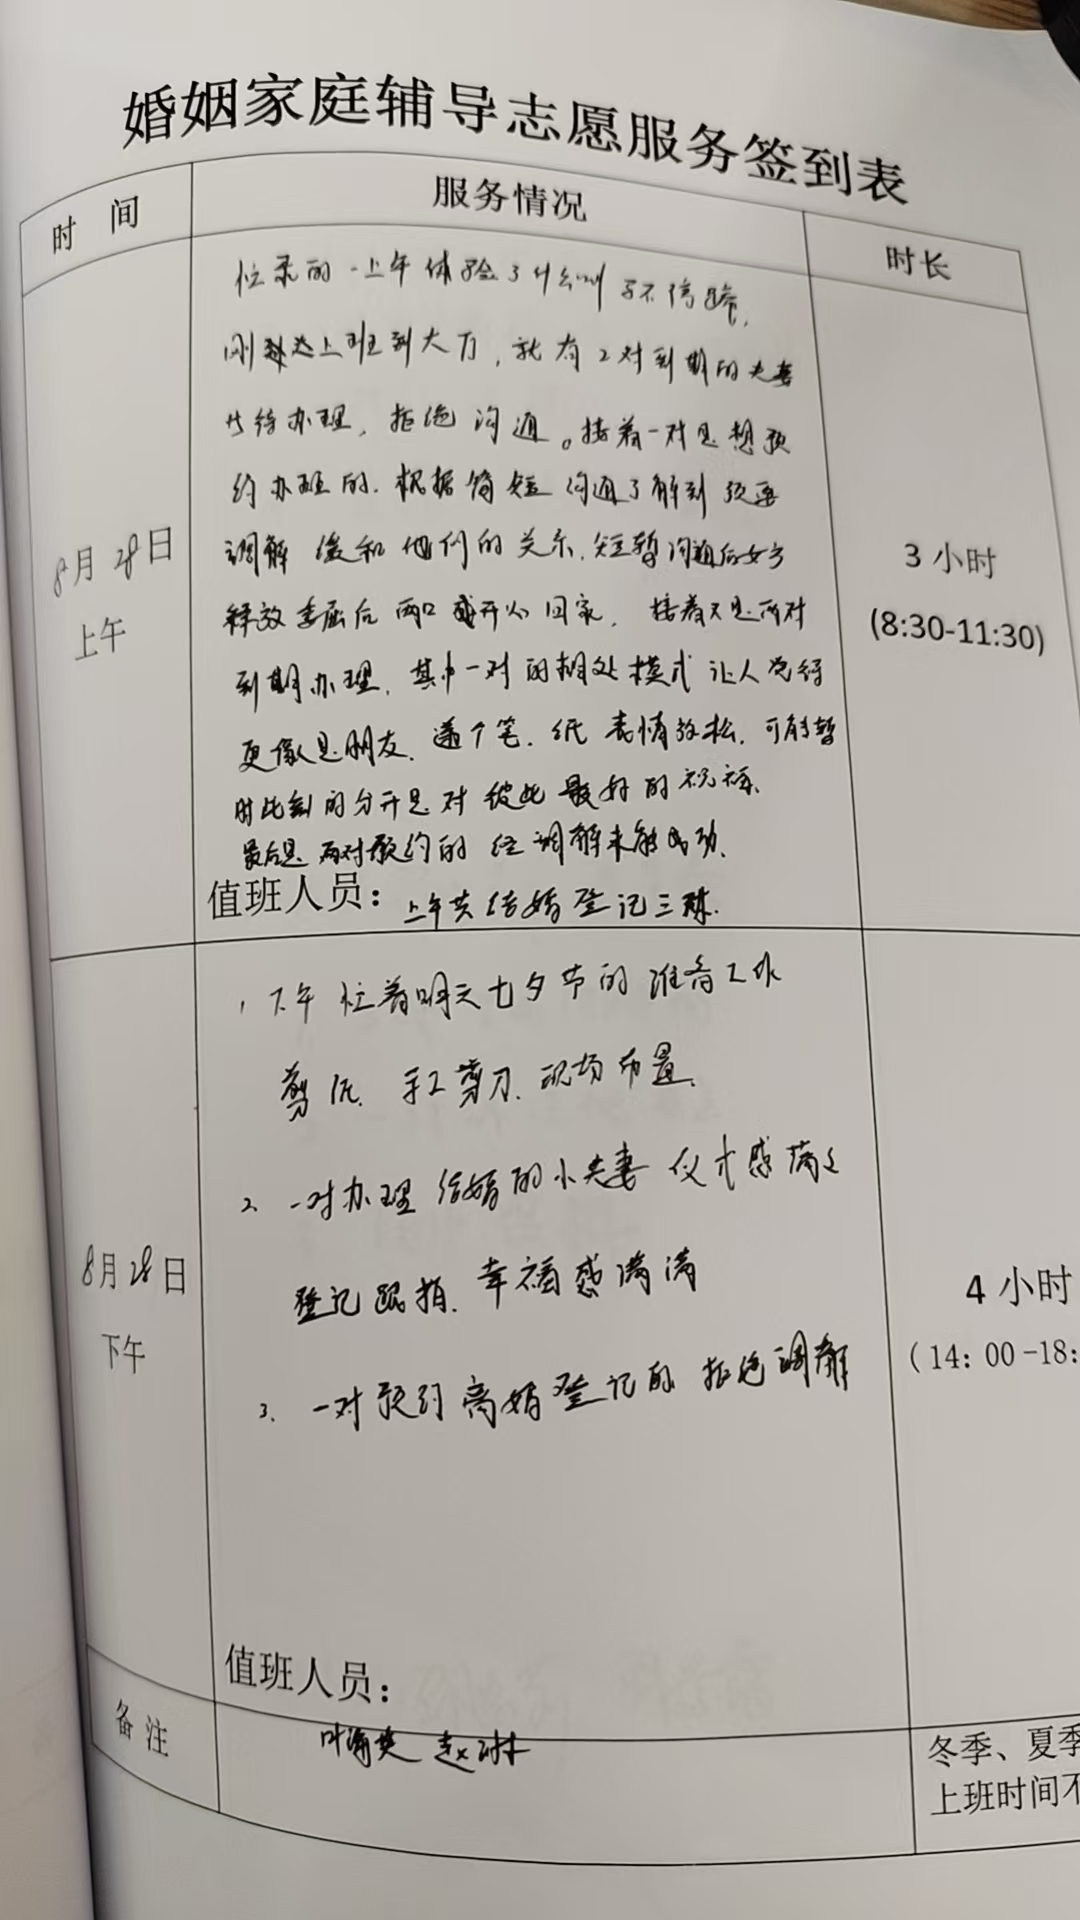 婚姻家庭辅导志愿服务签到表
时 间
服务情况
时长
忙录的一上午体验了什么叫 不停蹄，
刚 上班到大厅，就有2对到期的夫妻
等待办理，拒绝沟通。接着一对是想预
约办理的.根据简短沟通了解到须要
调解 缓和他们的关系.短暂沟通后女方
释放委屈后 两口 开心回家. 接着又是两对
到期办理，其中一对的相处模式让人觉得
更像是朋友.递个笔.纸 表情放松.可能暂
时 的分开是对彼此最好的祝福.
最后是两对预约的 经调解未能成功.
8月28日
上午
3小时
(8:30-11:30)
值班人员：上午共结婚登记三对.
1 下午忙着明天七夕节的准备工作
剪纸. 手工剪刀.现场布置.
2. 一对办理结婚的小夫妻 仪式感满
登记跟拍.幸福感满满
3. 一对预约离婚登记的 拒绝调解
8月28日
下午
4小时
（14：00-18:
值班人员：
备注
冬季、夏季
上班时间不